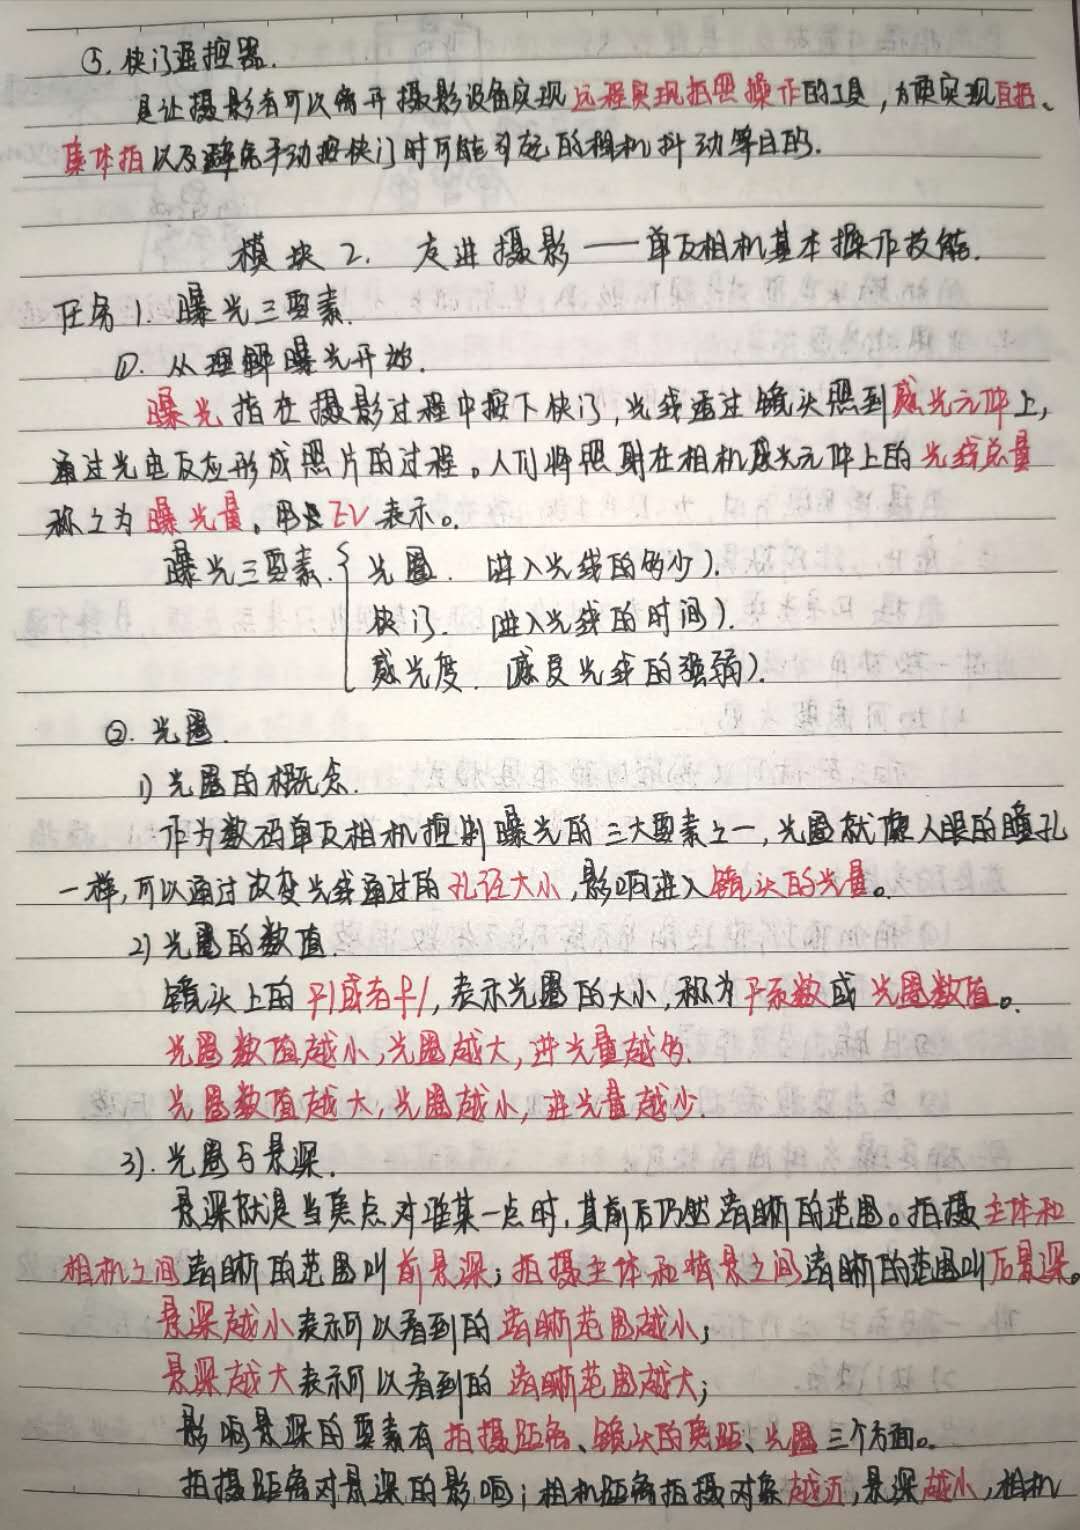 ⑤. 快门遥控器.
是让摄影者可以离开摄影设备实现远程实现拍照操作的工具，方便实现自拍、
集体拍以及避免手动按快门时可能引起的相机抖动等目的.
模块2. 走进摄影——单反相机基本操作技能.
任务1. 曝光三要素.
①. 从理解曝光开始.
曝光指在摄影过程中按下快门，光线透过镜头照到感光元件上，
通过光电反应形成照片的过程。人们将照射在相机感光元件上的光线总量
称之为曝光量。用EV表示。
曝光三要素. { 光圈. (进入光线的多少).
快门. (进入光线的时间).
感光度. (感受光线的强弱).
②. 光圈.
1) 光圈的概念.
作为数码单反相机控制曝光的三大要素之一，光圈就像人眼的瞳孔
一样，可以通过改变光线通过的孔径大小，影响进入镜头的光量。
2) 光圈的数值.
镜头上的F/或者f/，表示光圈的大小，称为F系数或光圈数值。
光圈数值越小，光圈越大，进光量越多.
光圈数值越大，光圈越小，进光量越少.
3). 光圈与景深.
景深就是当焦点对准某一点时，其前后仍然清晰的范围。拍摄主体和
相机之间清晰的范围叫前景深；拍摄主体和背景之间清晰的范围叫后景深。
景深越小表示可以看到的清晰范围越小；
景深越大表示可以看到的清晰范围越大；
影响景深的要素有拍摄距离、镜头的焦距、光圈三个方面。
拍摄距离对景深的影响；相机距离拍摄对象越近，景深越小，相机